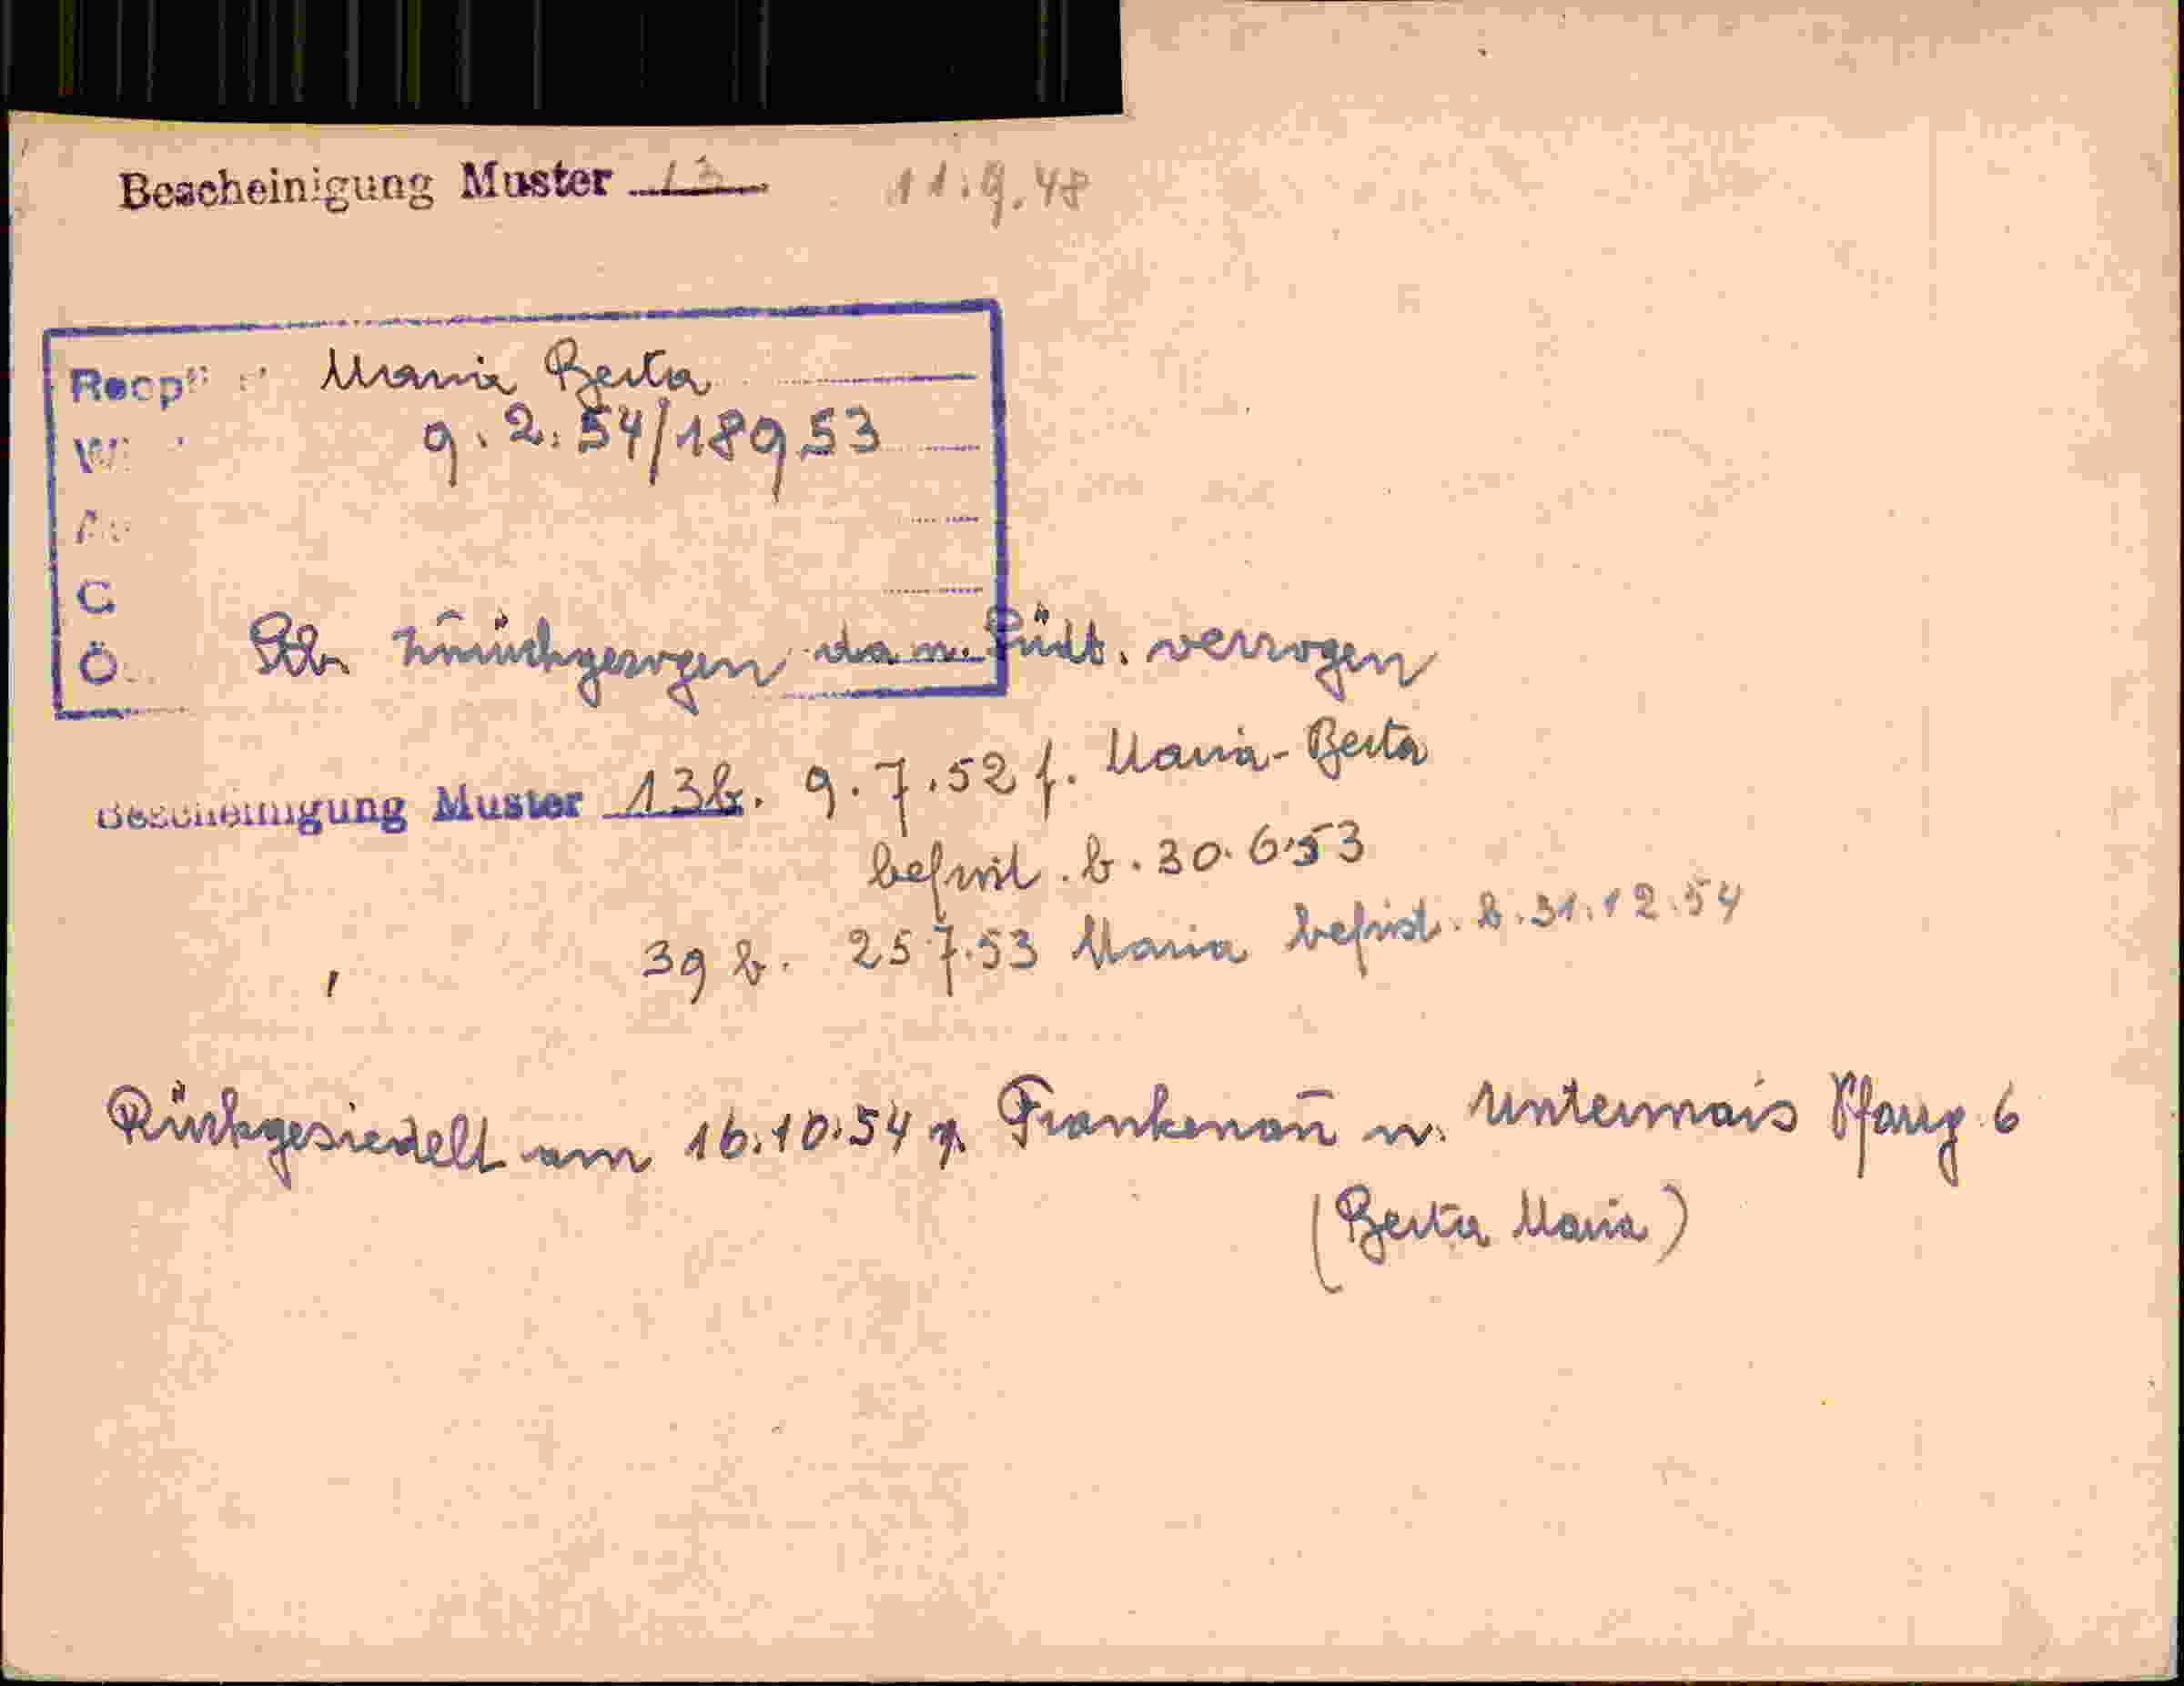 Bescheinigung Muster 13 11.9.48
Maria Berta
9.2.54/18953
C
Ö
Stb. zurückgezogen da n. Südt. verzogen
Bescheinigung Muster 13b. 9.7.52 f. Maria-Berta
befrist. b. 30.6.53
39 b. 25.7.53 Maria befrist. b. 31.12.54
Rückgesiedelt am 16.10.54 v. Frankenau n. Untermais Pfarrg. 6
(Berta Maria)